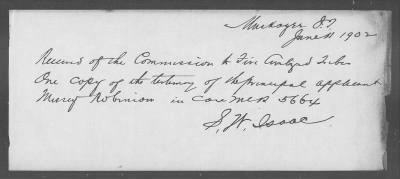 Muskogee I.T.
June 11 1902
Received of the Commission to Five Civilized Tribes
One copy of the testimony of the principal applicant
Robinson in case MCR 5664
S. W. Isaac